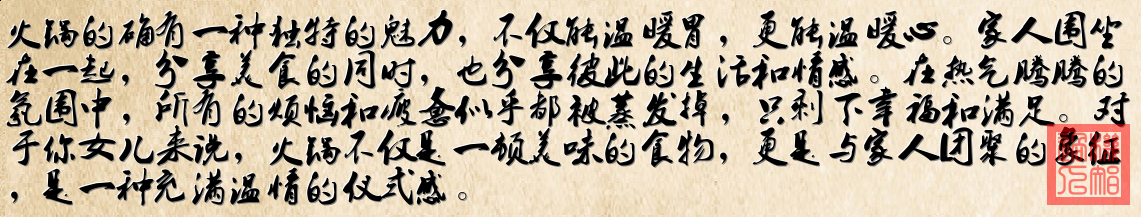 火锅的确有一种独特的魅力，不仅能温暖胃，更能温暖心。家人围坐
在一起，分享美食的同时，也分享彼此的生活和情感。在热气腾腾的
氛围中，所有的烦恼和疲惫似乎都被蒸发掉，只剩下幸福和满足。对
于你女儿来说，火锅不仅是一顿美味的食物，更是与家人团聚的象征
，是一种充满温情的仪式感。